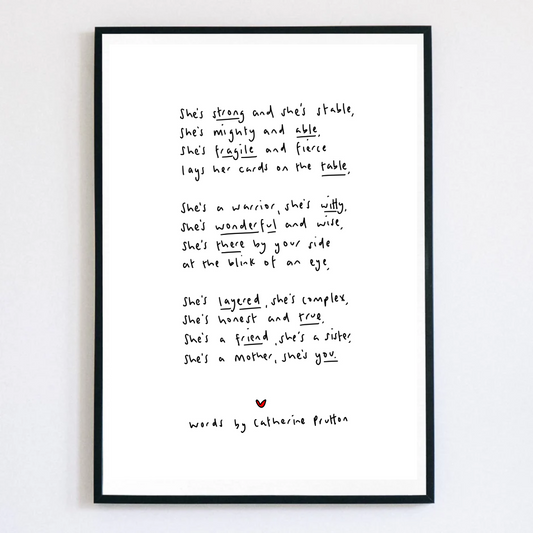 She's strong and she's stable,
She's mighty and able,
She's fragile and fierce
lays her cards on the table,
She's a warrior, she's witty,
She's wonderful and wise,
She's there by your side
at the blink of an eye,
She's layered, she's complex,
She's honest and true,
She's a friend, she's a sister,
She's a mother, she's you.
words by Catherine Prutton